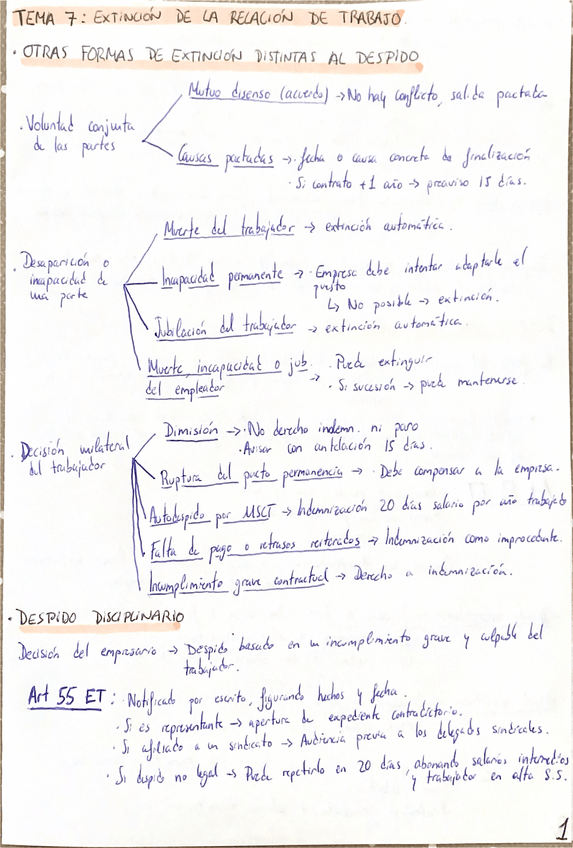 TEMA 7: EXTINCIÓN DE LA RELACIÓN DE TRABAJO.
· OTRAS FORMAS DE EXTINCIÓN DISTINTAS AL DESPIDO
· Voluntad conjunta de las partes
Mutuo disenso (acuerdo) → No hay conflicto, salida pactada
Causas pactadas → · fecha o causa concreta de finalización
· Si contrato +1 año → preaviso 15 días.
· Desaparición o incapacidad de una parte
Muerte del trabajador → extinción automática.
Incapacidad permanente → · Empresa debe intentar adaptarle el puesto
↳ No posible → extinción.
Jubilación del trabajador → extinción automática.
Muerte, incapacidad o jub. del empleador → · Puede extinguir
· Si sucesión → puede mantenerse.
· Decisión unilateral del trabajador
Dimisión → · No derecho indemn. ni paro
· Avisar con antelación 15 días.
Ruptura del pacto permanencia → · Debe compensar a la empresa.
Autodespido por MSCT → Indemnización 20 días salario por año trabajado
Falta de pago o retrasos reiterados → Indemnización como improcedente.
Incumplimiento grave contractual → Derecho a indemnización.
· DESPIDO DISCIPLINARIO
Decisión del empresario → Despido basado en un incumplimiento grave y culpable del
trabajador.
Art 55 ET: · Notificado por escrito, figurando hechos y fecha.
· Si es representante → apertura de expediente contradictorio.
· Si afiliado a un sindicato → Audiencia previa a los delegados sindicales.
· Si despido no legal → Puede repetirlo en 20 días abonando salarios intermedios
y trabajador en alta S.S.
1